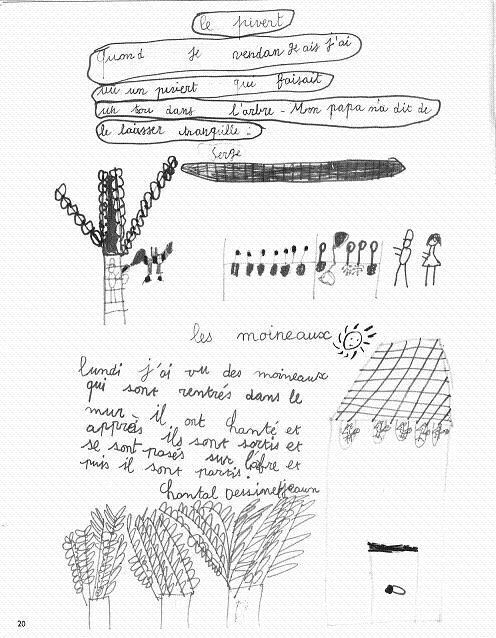 le pivert
Quand je vendangeais j'ai
vu un pivert qui faisait
un trou dans l'arbre - Mon papa m'a dit de
le laisser tranquille.
Serge
les moineaux
lundi j'ai vu des moineaux
qui sont rentrés dans le
mur il ont chanté et
apprès ils sont sortis et
se sont posés sur l'abre et
puis il sont partis.
Chantal Dessine
20